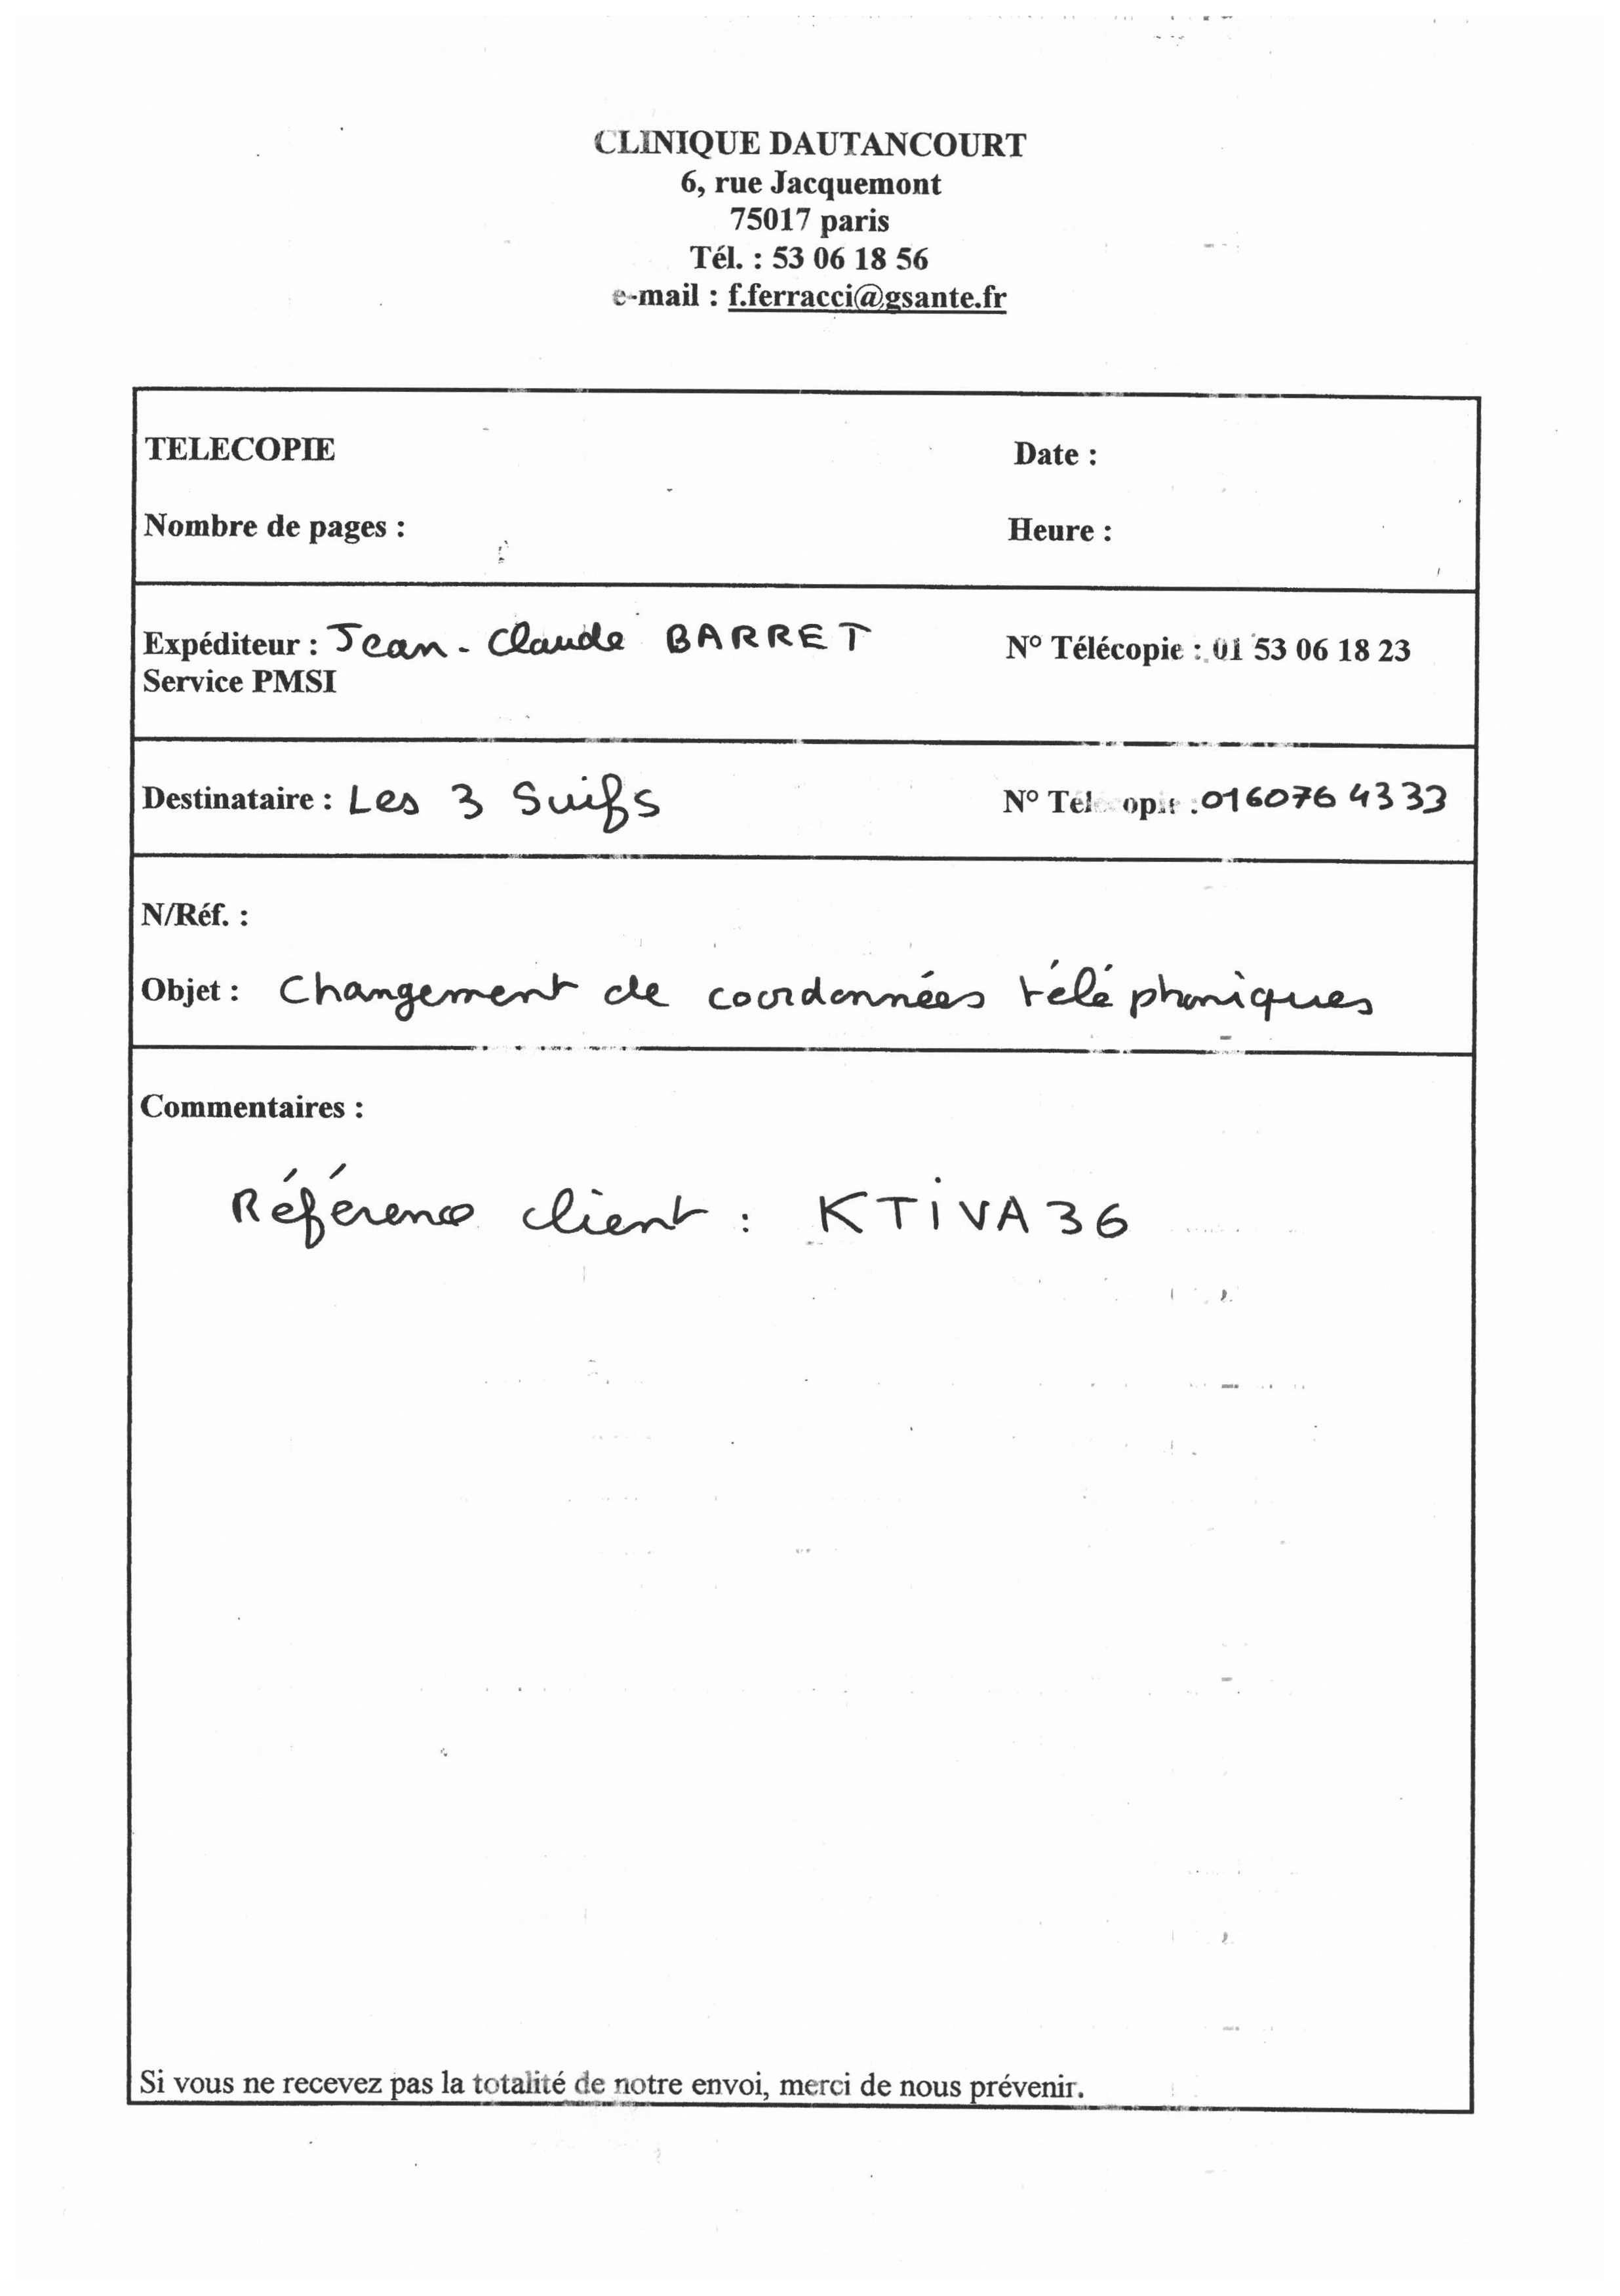 CLINIQUE DAUTANCOURT
6, rue Jacquemont
75017 paris
Tél. : 53 06 18 56
e-mail : f.ferracci@gsante.fr
TELECOPIE Date :
Nombre de pages : Heure :
Expéditeur : Jean-Claude BARRET N° Télécopie : 01 53 06 18 23
Service PMSI
Destinataire : Les 3 Suifs N° Telecopie : 0160764333
N/Réf. :
Objet : Changement de coordonnées téléphoniques
Commentaires :
Référence client : KTIVA36
Si vous ne recevez pas la totalité de notre envoi, merci de nous prévenir.